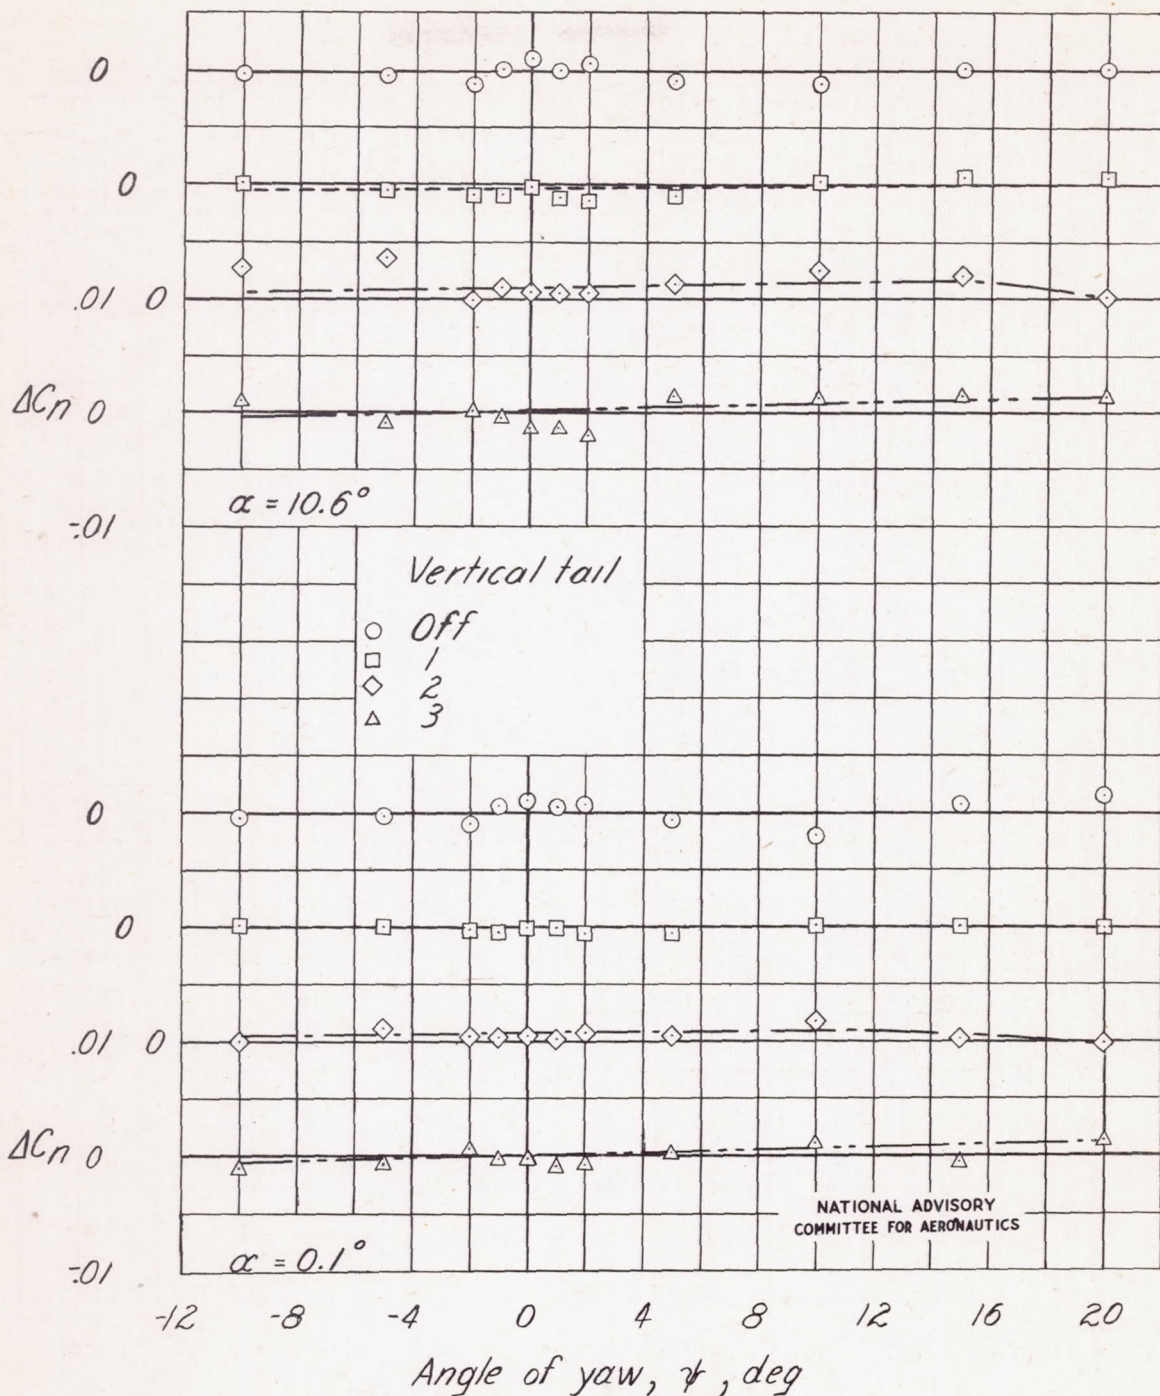 0
0
.01 0
ΔCn 0
α = 10.6°
-.01
Vertical tail
Off
1
2
3
0
0
.01 0
ΔCn 0
NATIONAL ADVISORY
COMMITTEE FOR AERONAUTICS
α = 0.1°
-.01
-12 -8 -4 0 4 8 12 16 20
Angle of yaw, ψ, deg